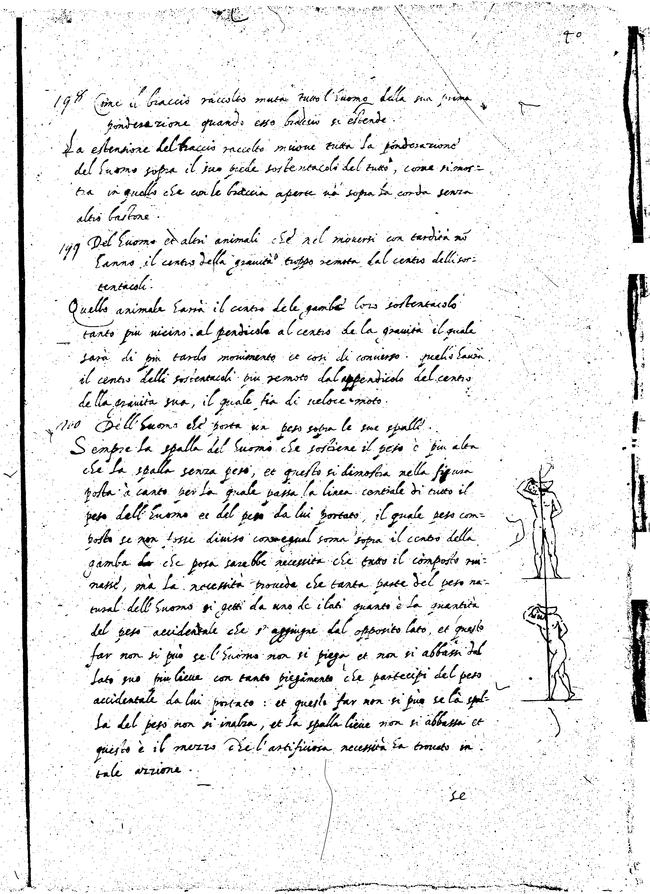 40
198 Come il braccio raccolto muta tutto l'huomo della sua prima
ponderazione quando esso braccio si estende.
La estensione del braccio raccolto muove tutta la ponderazione
del huomo sopra il suo piede sostentacolo del tutto, come si mos=
tra in quello che con le braccia aperte và sopra la corda senza
altro bastone.
199 Del huomo et altri animali che nel moversi con tardità nō
hanno il centro della gravità troppo remoto dal centro delli sos-
tentacoli.
Quello animale harrà il centro dele gambe loro sostentacolo
tanto piu vicino al pendicolo al centro de la gravità il quale
sarà di piu tardo movimento et cosi di converso. quello haurà
il centro delli sostentacoli piu remoto dal appendicolo del centro
della gravità sua, il quale fia di veloce moto.
Dell'huomo che porta un peso sopra le sue spalle.
Sempre la spalla del huomo che sostiene il peso è piu alta
che la spalla senza peso, et questo si dimostra nella figura
posta à canto per la quale passa la linea centrale di tutto il
peso dell'huomo et del peso da lui portato, il quale peso com-
posto se non fosse diviso con egual soma sopra il centro della
gamba che posa sarebbe necessità che tutto il composto rui-
nasse, mà la necessità provede che tanta parte del peso na-
tural dell'huomo si getti da uno de i lati quanto è la quantità
del peso accidentale che s'aggiugne dal opposito lato, et questo
far non si può se l'huomo non si piega et non si abbassi dal
lato suo piu lieve con tanto piegamento che partecipi del peso
accidentale da lui portato: et questo far non si può se la spal-
la del peso non si inalza, et la spalla lieve non si abbassa et
questo è il mezzo che l'artificiosa necessità ha trovato in
tale azzione.
se